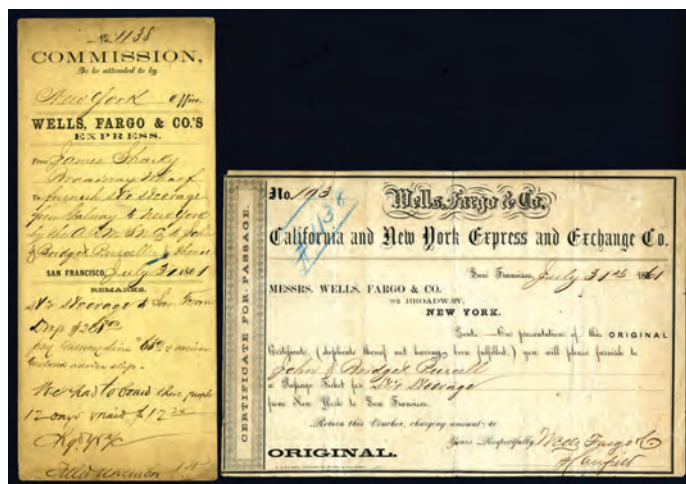 No. 1138
COMMISSION,
To be attended to by
New York Office.
WELLS, FARGO & CO.'S
EXPRESS.
From James Sharky
Broadway Wharf
to furnish Str Steerage
from Galway to New York
by the A.R.M.S.N.Co to John
& Bridget Purcell & thence
SAN FRANCISCO, July 31 1861
REMARKS.
Str Steerage to San
pay
advise
We had to board these people
12 days & paid $12
CERTIFICATE FOR PASSAGE.
No. 193
#1138
Wells, Fargo & Co.
California and New York Express and Exchange Co.
San Francisco, July 31st 1861
MESSRS. WELLS, FARGO & CO.
BROADWAY,
NEW YORK.
Gents:—On presentation of this ORIGINAL
Certificate, (duplicate thereof not having been fulfilled,) you will please furnish to
John & Bridget Purcell
a Passage Ticket for Str Steerage
from New York to San Francisco.
Return this Voucher, charging amount to
Yours Respectfully, Wells Fargo & Co
ORIGINAL.